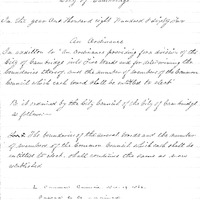 City of Cambridge
In the year One thousand eight hundred & eighty four
An Ordinance
In addition to "An ordinance providing for a division of the
City of Cambridge into Five Wards and for determining the
boundaries thereof and the number of members of the Common
Council which each ward shall be entitled to elect"
Be it ordained by the City Council of the City of Cambridge
as follows—
Sec. 1. The boundaries of the several wards and the number
of members of the Common Council which each shall be
entitled to elect, shall continue the same as now
established
In Common Council